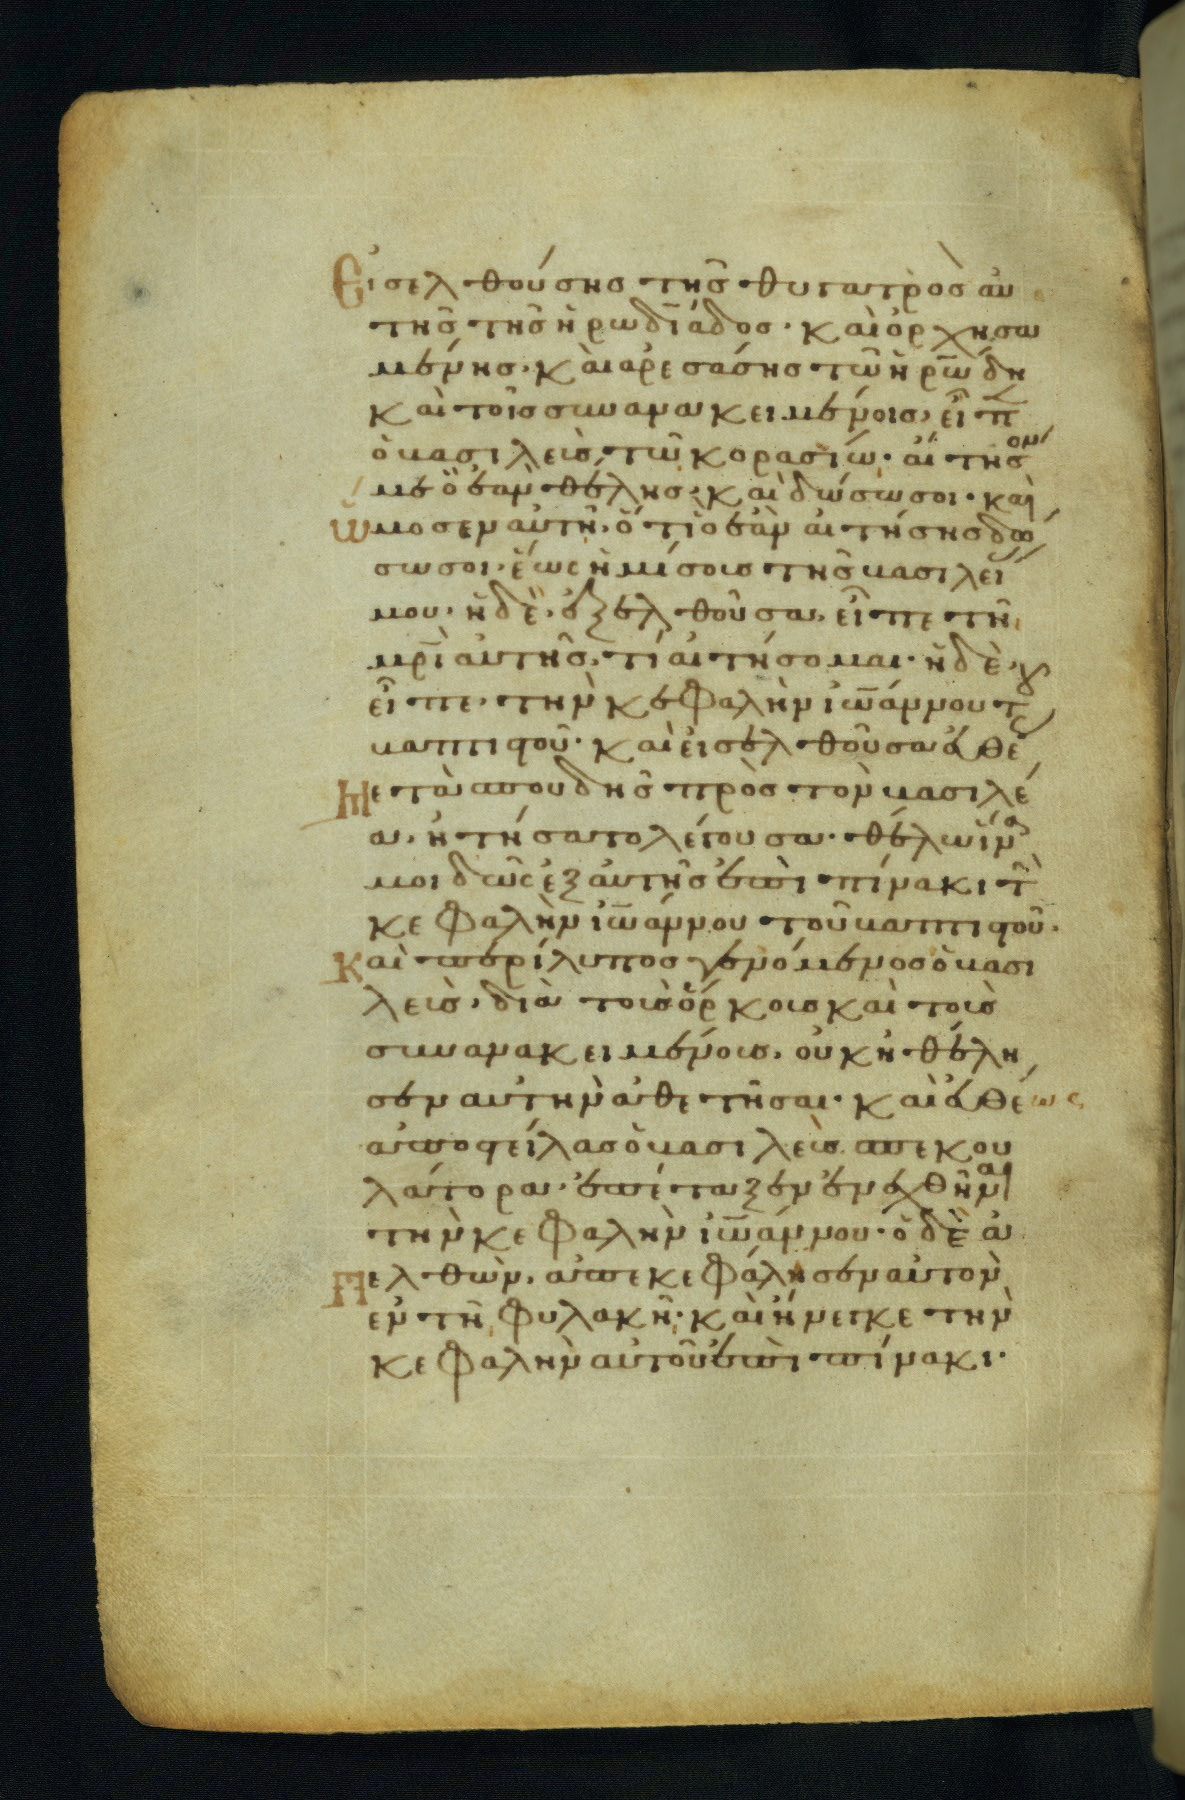 Εἰσελθούσης τῆς θυγατρὸς αὐ
τῆς τῆς ἡρωδϊάδος· καὶ ὀρχησα
μένης· καὶ ἀρεσάσης τῶ ἡρώδη
καὶ τοῖς συνανακειμένοις, εἶπ
ὁ βασιλεὺς τῶ κορασίω· αἴτησόν
με ὃ ἐὰν θέλης· καὶ δώσω σοι· καὶ
ὤμοσεν αὐτῆ, ὅτι ὃ ἐὰν αἰτήσης δώ
σω σοι· ἕως ἡμίσους τῆς βασιλεί
μου· ἡ δὲ ἐξελθοῦσα, εἶπε τῆ
μρὶ αὐτῆς, τί αἰτήσομαι· ἡ δὲ
εἶπε· τὴν κεφαλὴν ἰωάννου τ
βαπτιστοῦ· καὶ εἰσελθοῦσα εὐθέ
Μετὰ σπουδῆς πρὸς τὸν βασιλέ
α, ἠτήσατο λέγουσα· θέλω ἵνα
μοι δῶς ἐξαυτῆς ἐπὶ πίνακι τὴ
κεφαλὴν ἰωάννου τοῦ βαπτιστοῦ·
Καὶ περίλυπος γενόμενος ὁ βασι
λεὺς, διὰ τοὺς ὅρκους καὶ τοὺς
συνανακειμένους, οὐκ ἠθέλη
σεν αὐτὴν ἀθετῆσαι· καὶ εὐθέως
ἀποστείλας ὁ βασιλεὺς σπεκου
λάτορα· ἐπέταξεν ἐνεχθῆναι
τὴν κεφαλὴν ἰωάννου· ὁ δὲ ἀ
Πελθὼν, ἀπεκεφάλησεν αὐτὸν
ἐν τῆ φυλακῆ· καὶ ἤνεγκε τὴν
κεφαλὴν αὐτοῦ ἐπὶ πίνακι·